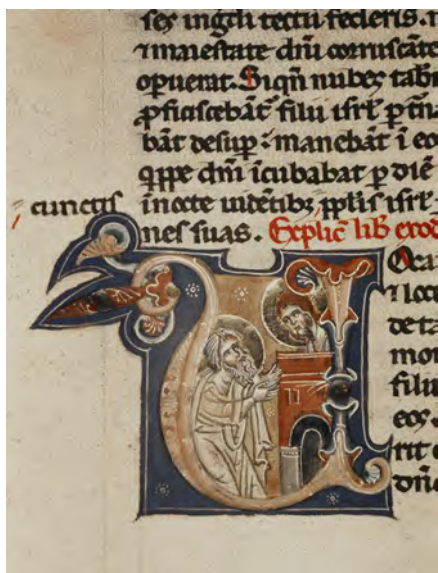 ses ingdi tectū federis. n
⁊ maiestate dn̄i coruscāte
opuerat. Siqn̄ nubes tabn̄
ꝓficiscebāt᷑ filii isrl̄ ꝑ tur
bāt desuꝑ: manebāt ī eo
qppe dn̄i īcubabat ꝑ diē
cunctis īnocte uidētibꝫ pplis isrl̄
nes suas. Explic̄ lib̄ exod
Oca
⁊ loc
de ta
moy
filii
eos.
rit
dn̄o